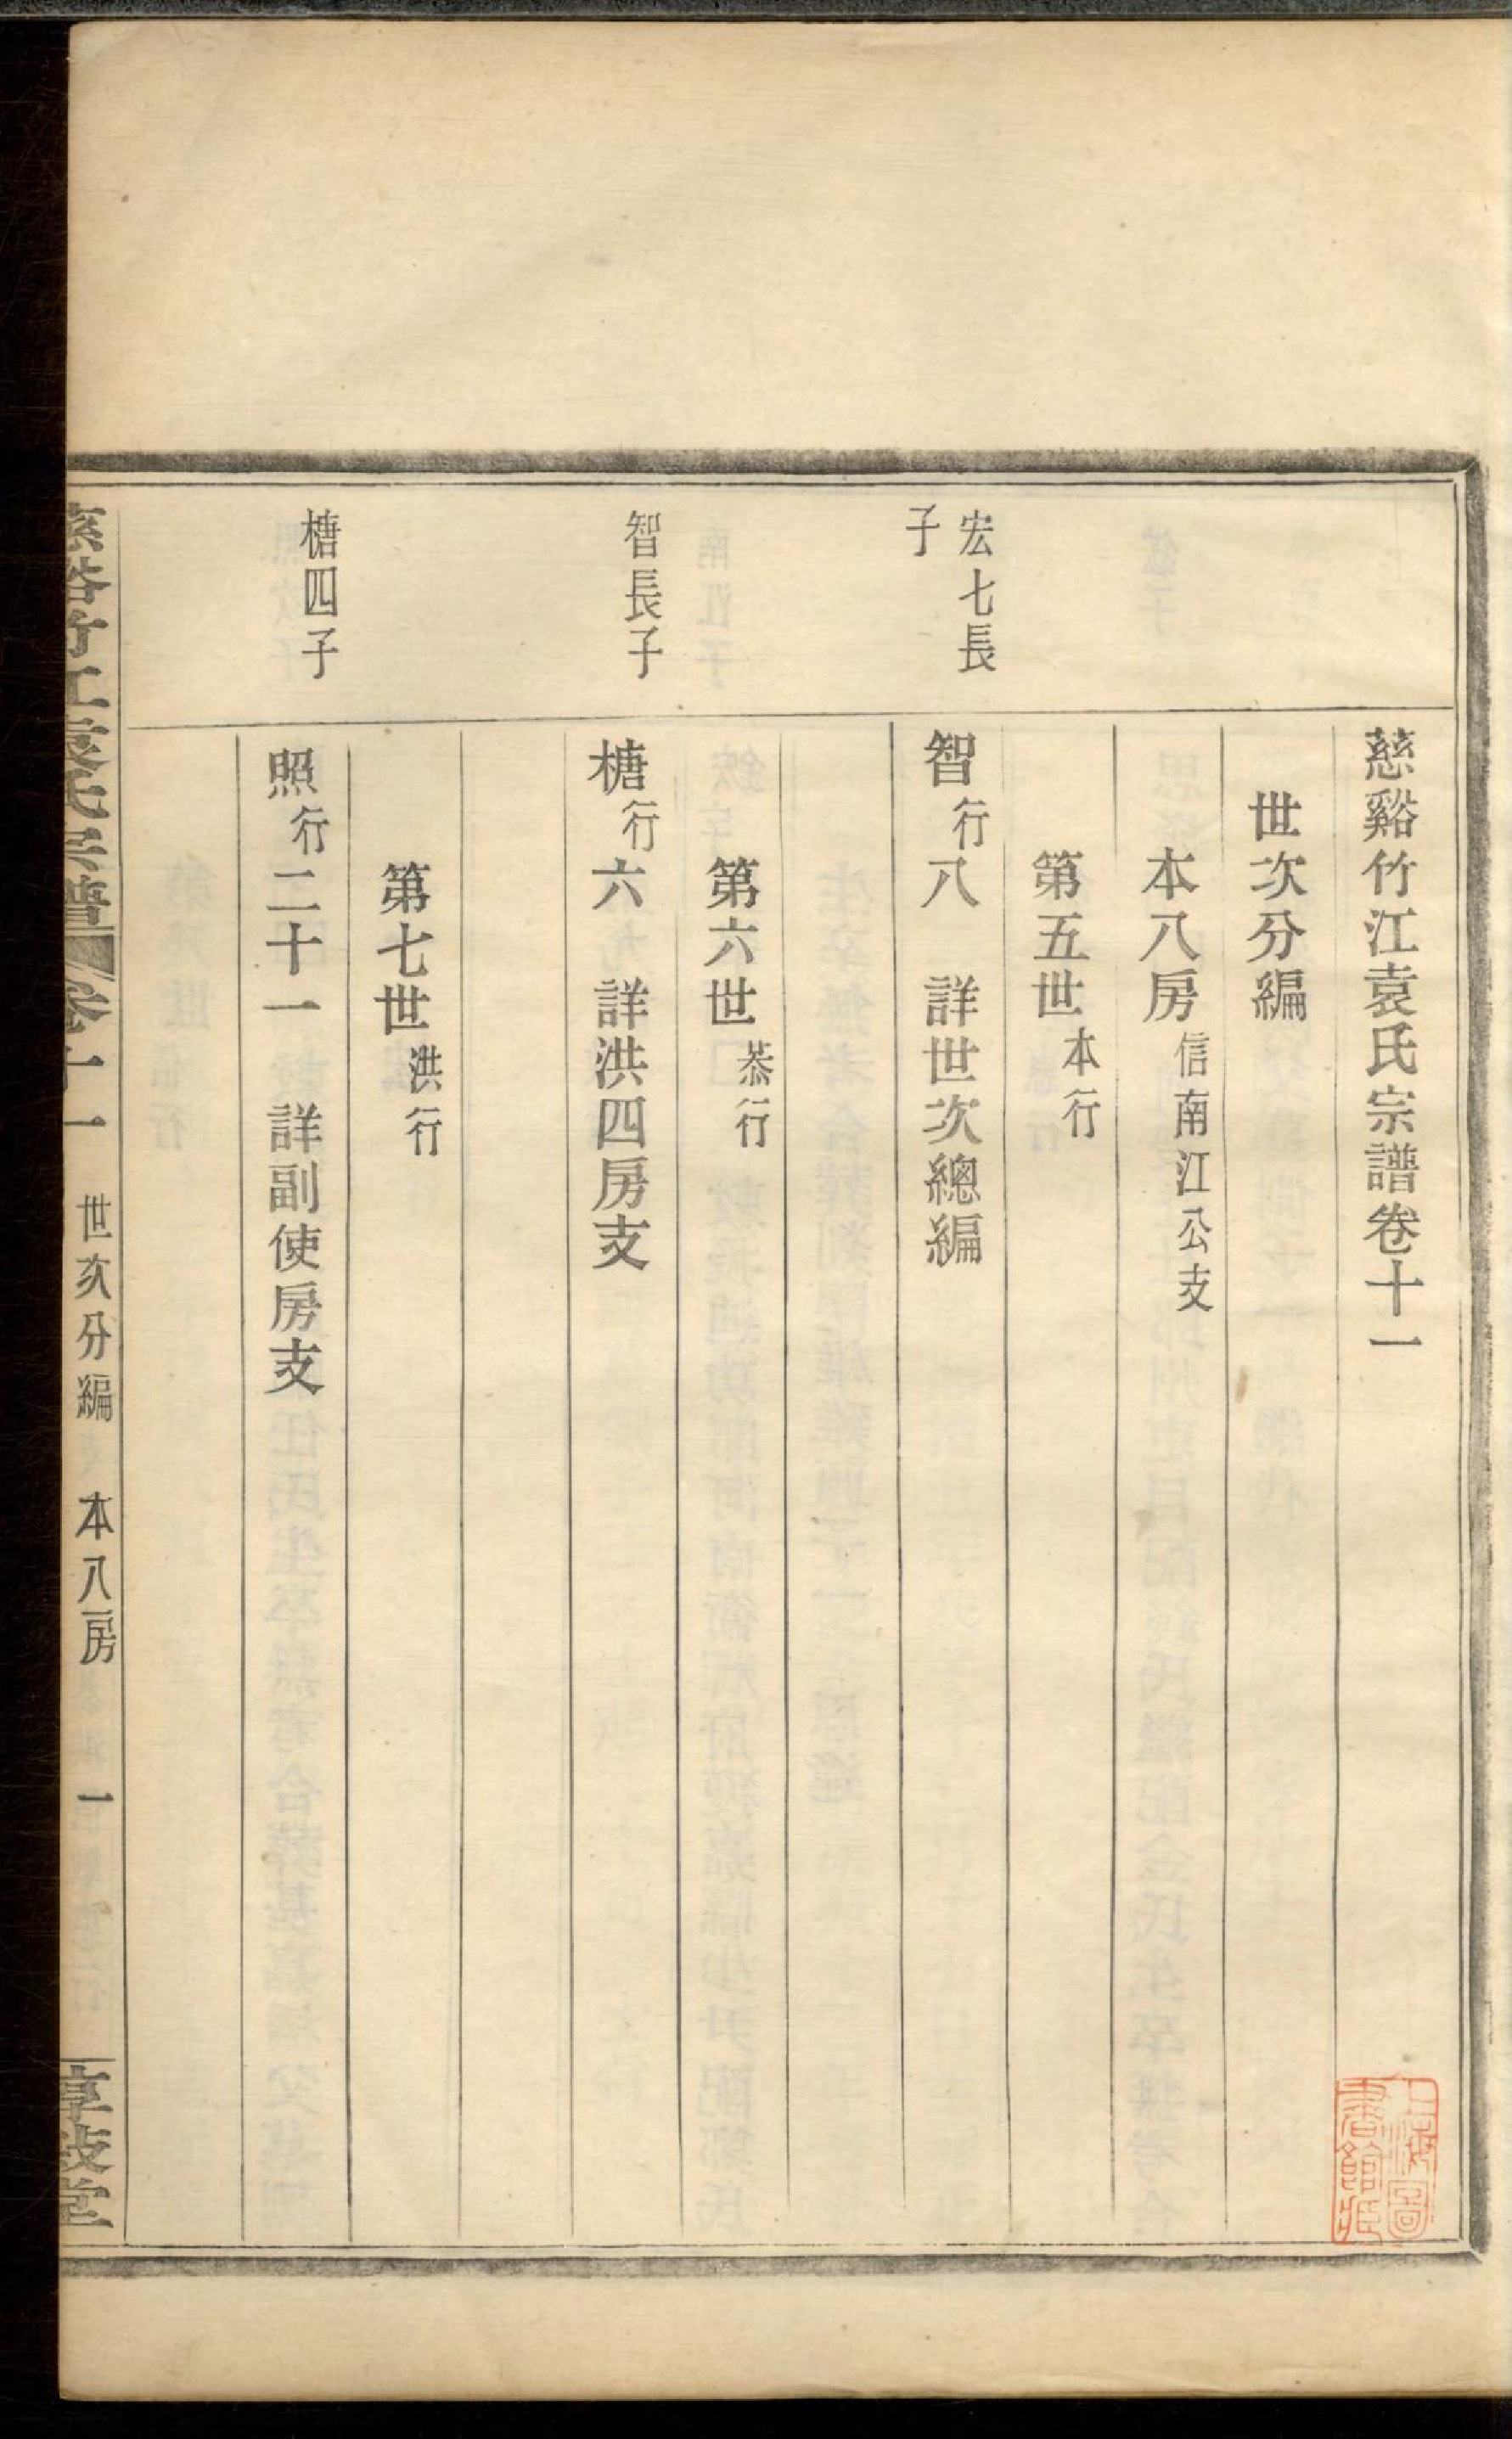 慈谿竹江袁氏宗譜卷十一
世次分編
本八房信南江公支
第五世本行
宏七長子
智行八　詳世次總編
第六世恭行
智長子
榶行六　詳洪四房支
第七世洪行
榶四子
照行二十一　詳副使房支
慈谿竹江袁氏宗譜 卷十一 世次分編 本八房 一 享敍堂
上海圖書館藏